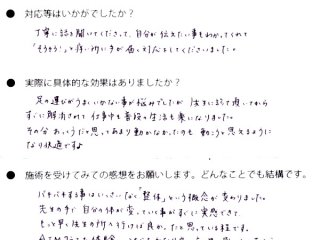 ● 対応等はいかがでしたか？
丁寧に話を聞いてくださって、自分が伝えたい事もわかってくれて
「そうそう!」と痒い所に手が届く対応をしてくださいました。
● 実際に具体的な効果はありましたか？
足の運びがうまくいかない事が悩みでしたが 先生に診て頂いてから
すぐに解消されて 仕事中も普段の生活も楽になりました。
その分 あっ
だと思って あまり動かなかったのも 動こうと思えるように
なり快適ですよ
● 施術を受けてみての感想をお願いします。どんなことでも結構です。
バキバキする事はいっさいなく「整体」という概念が変わりました。
先生の手で 自分の体が変っていく事がすぐに実感できて
もっと早く先生の所へ行けば良かったと思っている程です。